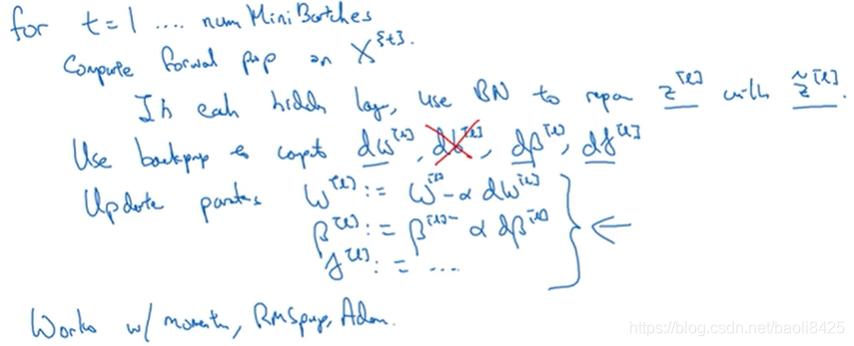 for t = 1 .... num Mini Batches
Compute forwal pop on X^{t}.
In each hidden lay, use BN to repar z^[l] with z̃^[l].
Use backprop to compt dw^[l], db^[l], dβ^[l], dγ^[l]
Update partes w^[l] := w^[l] - α dw^[l]
β^[l] := β^[l] - α dβ^[l]
γ^[l] := ....
←
Works w/ momentum, RMSprop, Adam.
https://blog.csdn.net/baoli8425